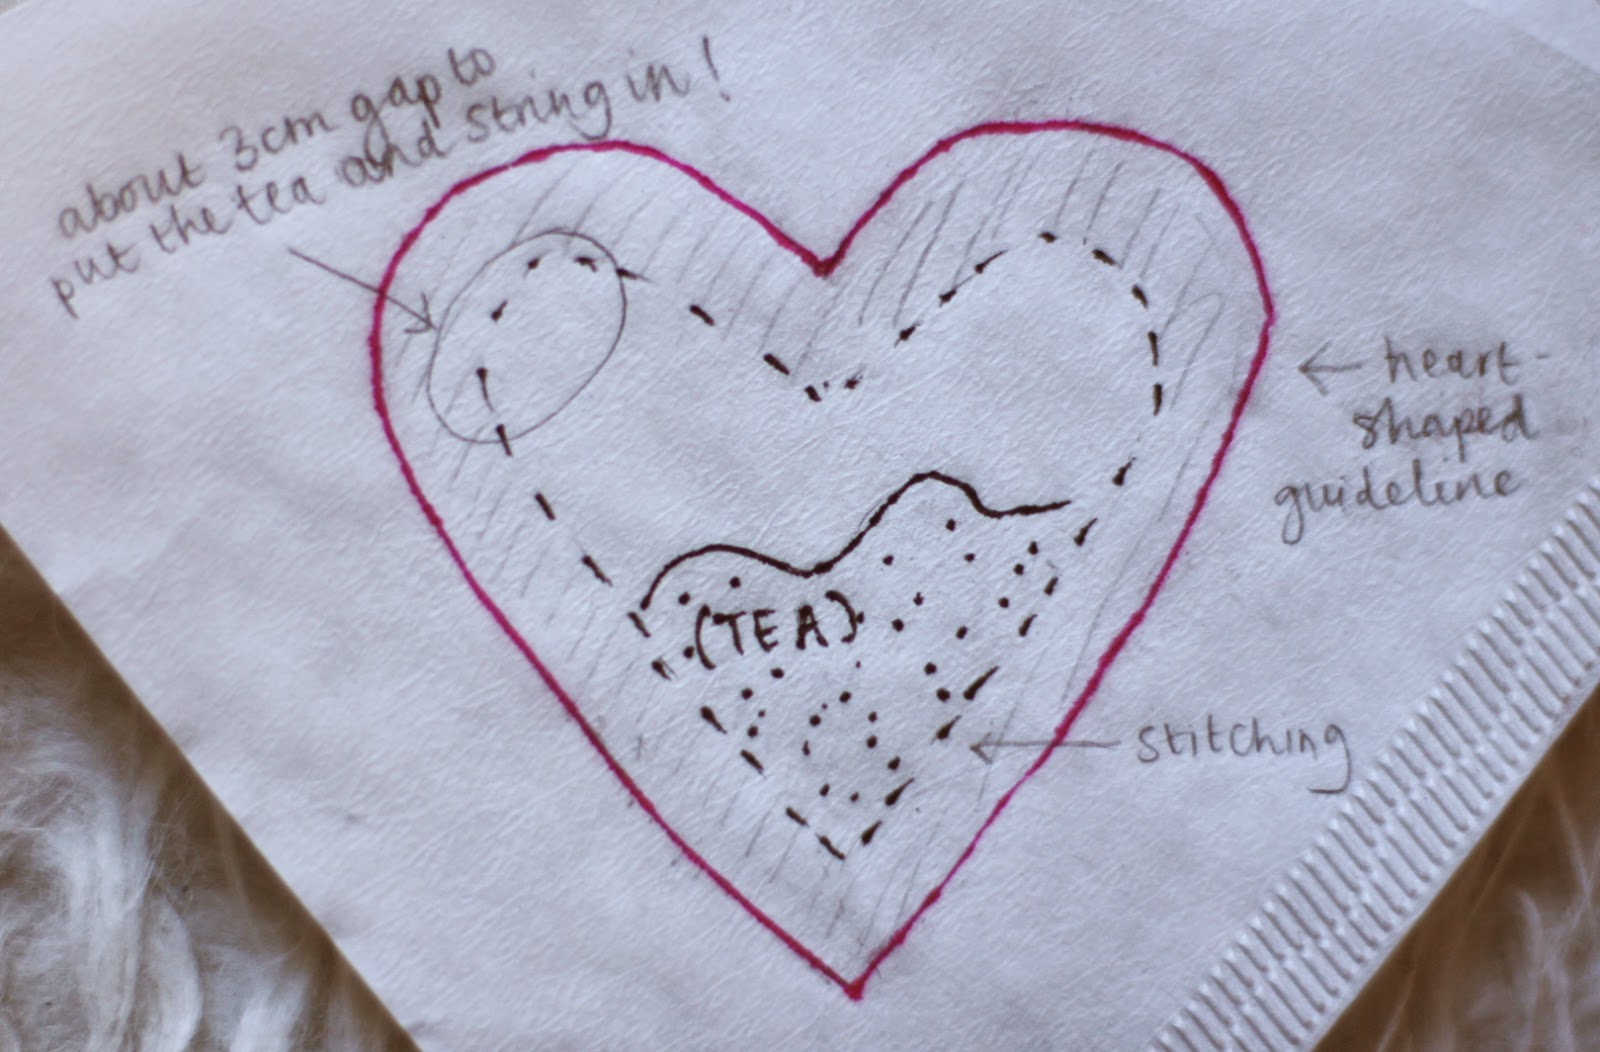 about 3cm gap to
put the tea and string in!
heart-
shaped
guideline
(TEA)
stitching